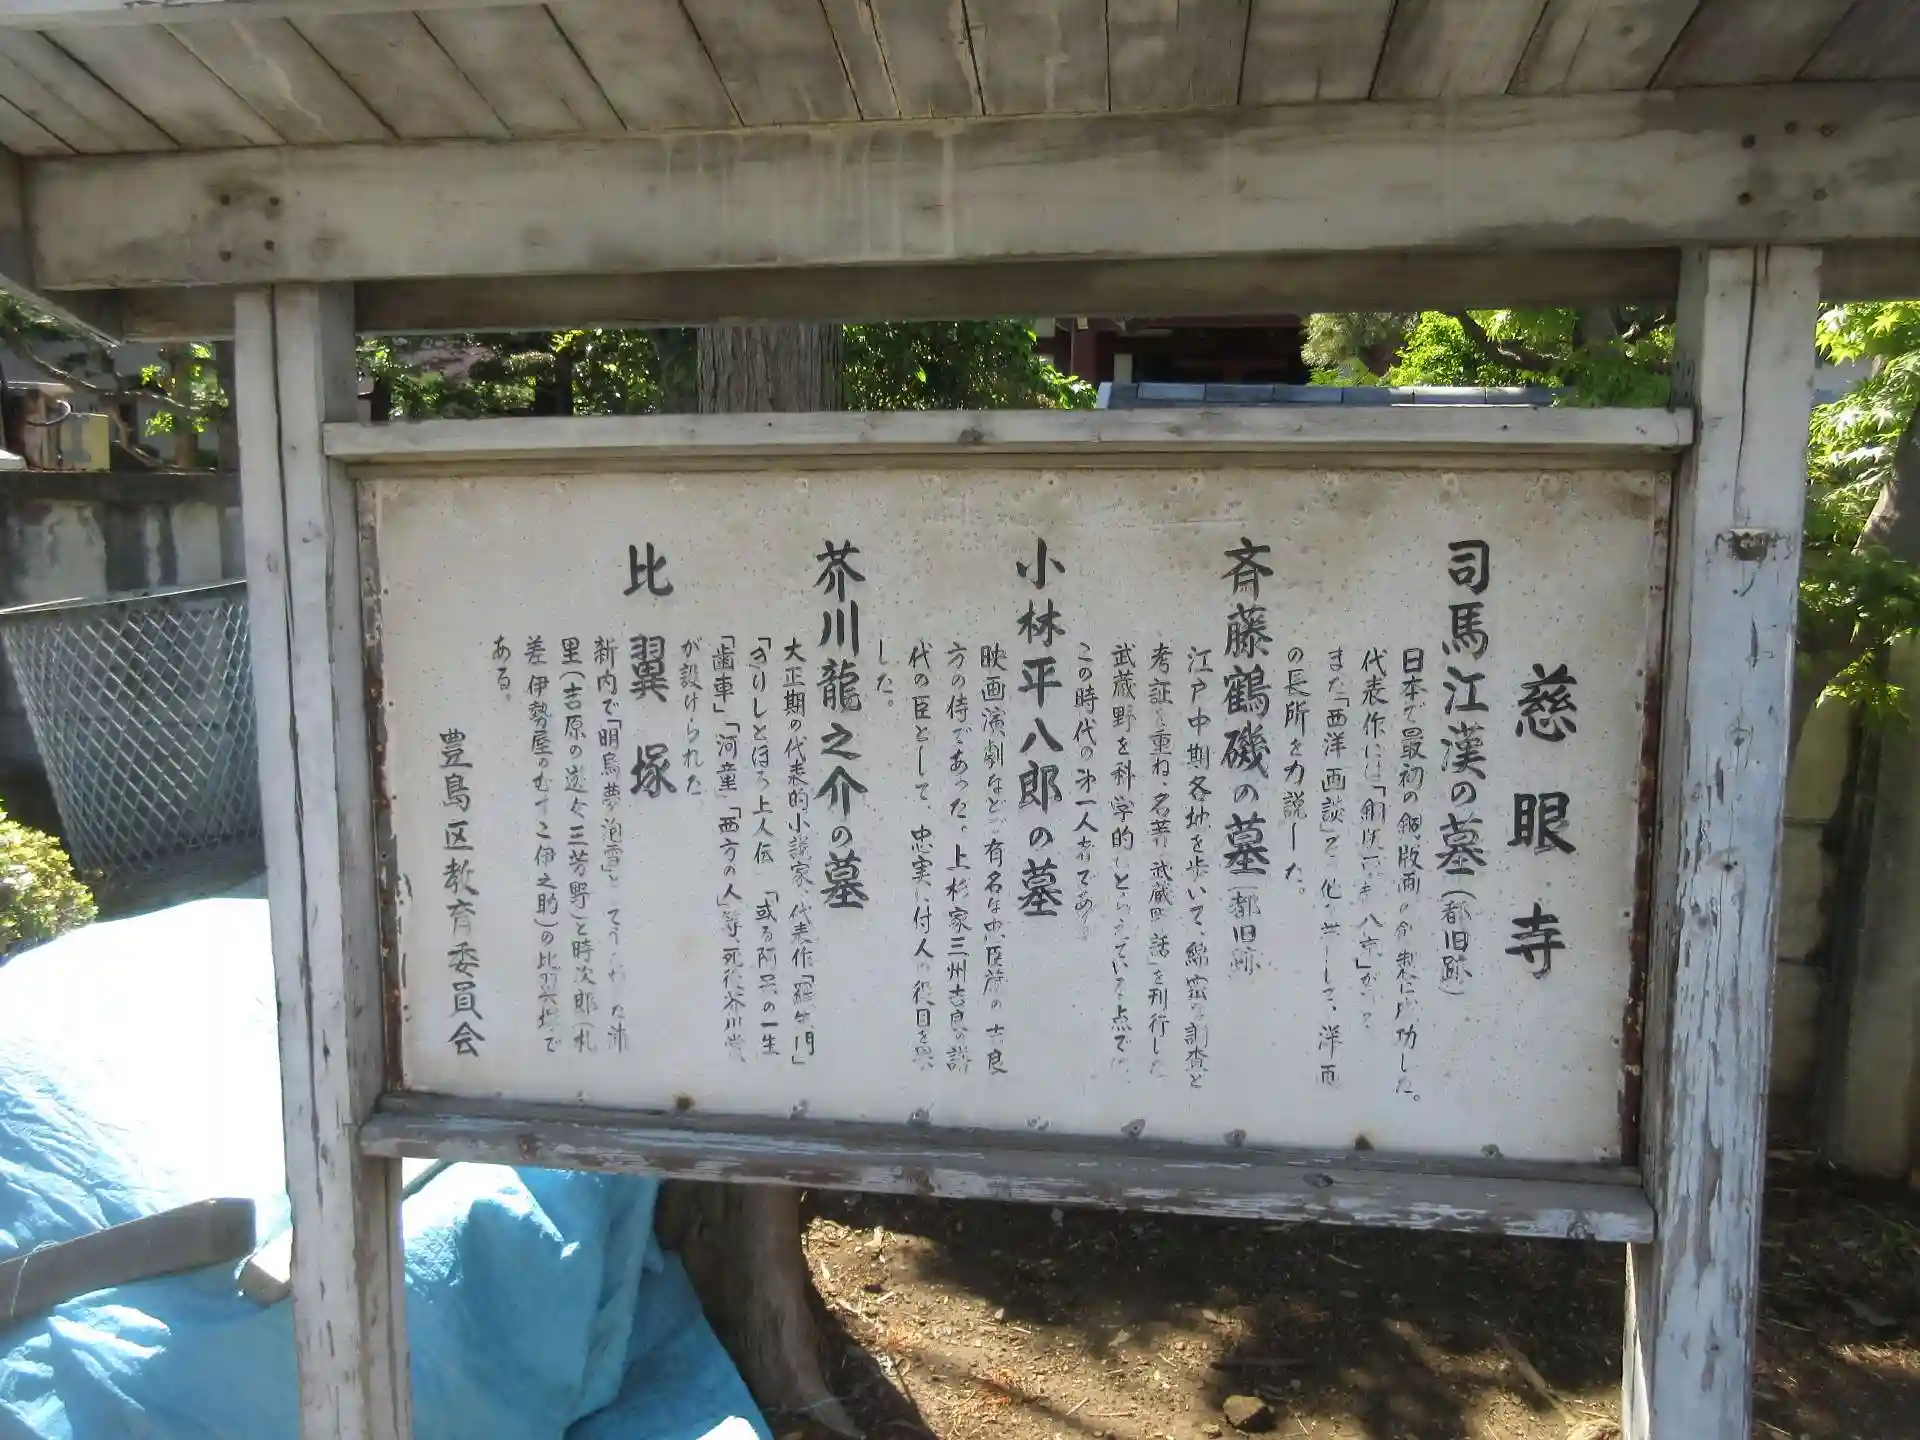 慈眼寺
司馬江漢の墓(都旧跡)
日本で最初の銅版画の創製に成功した。
代表作には「銅版 八景」が
また「西洋画談」 洋画
の長所を力説した。
斎藤鶴磯の墓(都旧跡)
江戸中期各地を歩いて、綿密な調査と
考証を重ね、名著「武蔵野話」を刊行した
武蔵野を科学的にとらえている点では、
この時代の第一人者である
小林平八郎の墓
映画演劇などで有名な忠臣蔵の吉良
方の侍であった。上杉家三州吉良の譜
代の臣として、忠実に付人の役目を果
した。
芥川龍之介の墓
大正期の代表的小説家、代表作「羅生門」
「きりしとほろ上人伝」「或る阿呆の一生
「歯車」「河童」「西方の人」等、死後芥川賞
が設けられた
比翼塚
新内で「明烏夢泡雪」とてうたわれた浦
里(吉原の遊女三芳野)と時次郎(札
差伊勢屋のむすこ伊之助)の比翼塚で
ある。
豊島区教育委員会